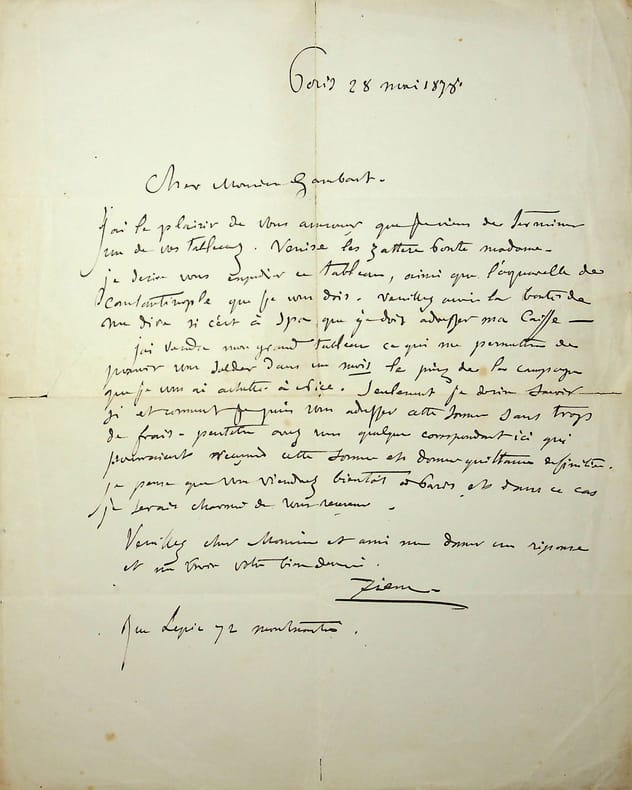 Paris 28 mai 1878.
Cher Monsieur Gambart.
J'ai le plaisir de vous annoncer que je viens de terminer
un de vos tableaux. Venise les Zattere
je desire vous expedier ce tableau, ainsi que l'aquarelle de
Constantinople que je vous dois. Veuillez avoir la bonté de
me dire si c'est à Spa que je dois adresser ma Caisse —
j'ai vendu mon grand tableau ce qui me permettra de
pouvoir vous solder dans un mois le prix de la campagne
que je vous ai achetée à Nice. Seulement je desire savoir
si et comment je puis vous adresser cette somme sans trop
de frais - peutetre avez vous quelque correspondant ici qui
pourraient cette somme et donner quittance definitive.
je pense que vous viendrez bientôt à Paris, et dans ce cas
je serais charmé de vous recevoir.
Veuillez cher Monsieur et ami me donner une reponse
et me croire votre bien devoué.
Ziem
Rue Lepic 72 montmartre.